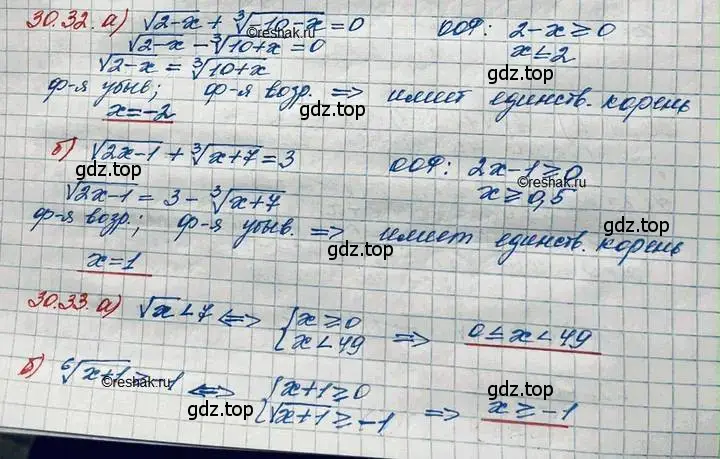 30.32. а) √2-x + ∛-10-x = 0 ООФ: 2-x ≥ 0
√2-x - ∛10+x = 0 x ≤ 2
√2-x = ∛10+x
gdz.top
ф-я убыв; ф-я возр. => имеет единств. корень
x = -2
gdz.top gdz.top
б) √2x-1 + ∛x+7 = 3 ООФ: 2x-1 ≥ 0
©reshak.ru
√2x-1 = 3 - ∛x+7 x ≥ 0,5
ф-я возр.; ф-я убыв. => имеет единств. корень
gdz.top gdz.top
x = 1
30.33. а) √x < 7 <=> {x ≥ 0 x < 49 => 0 ≤ x < 49
gdz.top
б) ⁶√x+1 ≥ -1 <=> {x+1 ≥ 0 √x+1 ≥ -1 => x ≥ -1
©reshak.ru
gdz.top gdz.top